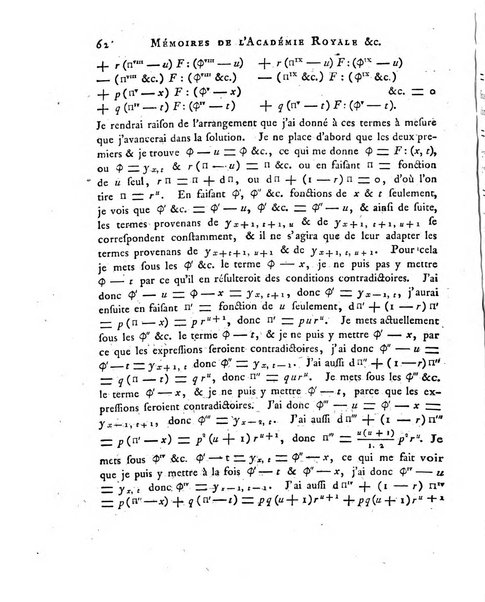 62 MÉMOIRES DE L'ACADÉMIE ROYALE &c.
+ r(Π^viii — u) F:(Φ^viii — u) + r(Π^ix — u) F:(Φ^ix — u)
— (Π^viii &c.) F:(Φ^viii &c.) — (Π^ix &c.) F:(Φ^ix &c.)
+ p(Π^iv — x) F:(Φ^iv — x) &c. = 0
+ q(Π^iv — t) F:(Φ^iv — t) + q(Π^v — t) F:(Φ^v — t).
Je rendrai raison de l'arrangement que j'ai donné à ces termes à mesure
que j'avancerai dans la solution. Je ne place d'abord que les deux pre-
miers & je trouve Φ — u = Φ &c., ce qui me donne Φ = F:(x, t),
ou Φ = y_x, t & r(Π — u) = Π &c. ou en faisant Π = fonction
de u seul, rΠ = Π + dΠ, ou dΠ + (1 — r)Π = 0, d'où l'on
tire Π = r^u. En faisant Φ', Φ'' &c. fonctions de x & t seulement,
je vois que Φ' &c. = Φ' — u, Φ'' &c. = Φ'' — u, & ainsi de suite,
les termes provenans de y_x+1, t+1, u & de y_x+1, t+1, u+1 se
correspondent constamment, & il ne s'agira que de leur adapter les
termes provenans de y_x+t+1, u+1 & de y_x+1, t, u+1. Pour cela
je mets sous les Φ' &c. le terme Φ — x, je ne puis pas y mettre
Φ — t par ce qu'il en résulteroit des conditions contradictoires. J'ai
donc Φ' — u = Φ — x = y_x, t+1, donc Φ' = y_x—1, t, j'aurai
ensuite en faisant Π' = fonction de u seulement, dΠ' + (1 — r)Π'
= p(Π — x) = pr^u+1, donc Π' = pur^u. Je mets actuellement
sous les Φ'' &c. le terme Φ — t, & je ne puis y mettre Φ' — x, par
ce que les expressions seroient contradictoires, j'ai donc Φ'' — u =
Φ' — t = y_x+1, t donc Φ'' = y_x, t—1. J'ai aussi dΠ'' + (1 — r)Π''
= q(Π — t) = qr^u, donc Π'' = qur^u. Je mets sous les Φ''' &c.
le terme Φ' — x, & je ne puis y mettre Φ' — t, parce que les ex-
pressions seroient contradictoires, j'ai donc Φ''' — u = Φ' — x =
y_x—1, t+1, donc Φ''' = y_x—2, t. J'ai aussi dΠ''' + (1 — r)Π'''
= p(Π' — x) = p²(u+1)r^u+1, donc Π''' = u(u+1)/1.2 p²r^u. Je
mets sous Φ^iv &c. Φ' — t = Φ'' — x, ce qui me fait voir
que je puis y mettre à la fois Φ' — t & Φ'' — x, j'ai donc Φ^iv — u
= y_x, t donc Φ^iv = y_x—1, t—1. J'ai aussi dΠ^iv + (1 — r)Π^iv
= p(Π'' — x) + q(Π' — t) = pq(u+1)r^u+1 + pq(u+1)r^u+1